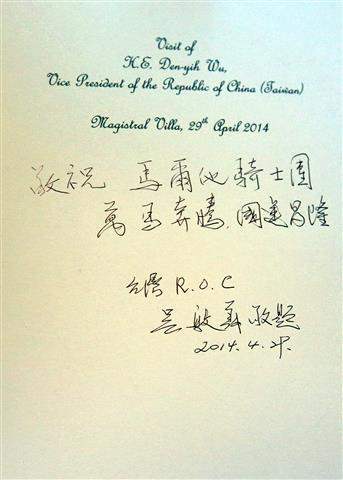 Visit of
H.E. Den-yih Wu,
Vice President of the Republic of China (Taiwan)
Magistral Villa, 29th April 2014
敬祝 馬爾他騎士團
萬馬奔騰.國運昌隆
台灣 R.O.C
吳敦義敬題
2014.4.29.